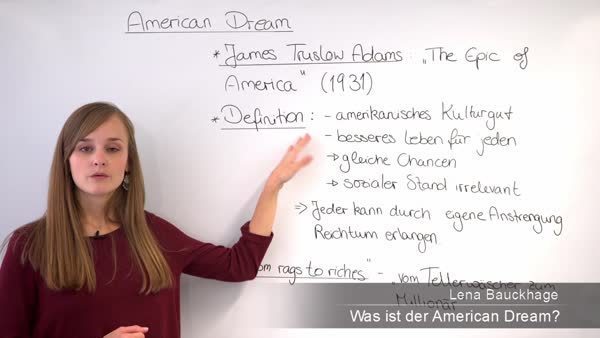 American Dream
* James Truslow Adams: „The Epic of
America" (1931)
* Definition: - amerikanisches Kulturgut
- besseres Leben für jeden
→ gleiche Chancen
→ sozialer Stand irrelevant
⇒ Jeder kann durch eigene Anstrengung
Reichtum erlangen
rags to riches" - „vom Tellerwäscher zum
Millionär
Lena Bauckhage
Was ist der American Dream?